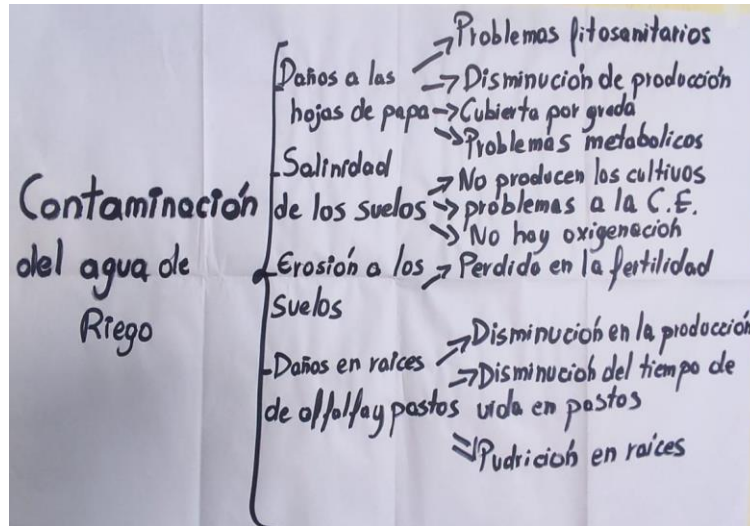 Contaminación
del agua de
Riego
Daños a las
hojas de papa
Problemas fitosanitarios
Disminución de producción
Cubierta por greda
Problemas metabolicos
Salinidad
de los suelos
No producen los cultivos
problemas a la C.E.
No hay oxigenación
Erosión a los
suelos
Perdida en la fertilidad
Daños en raices
de alfalfa y pastos
Disminución en la producción
Disminución del tiempo de
vida en pastos
Pudrición en raices